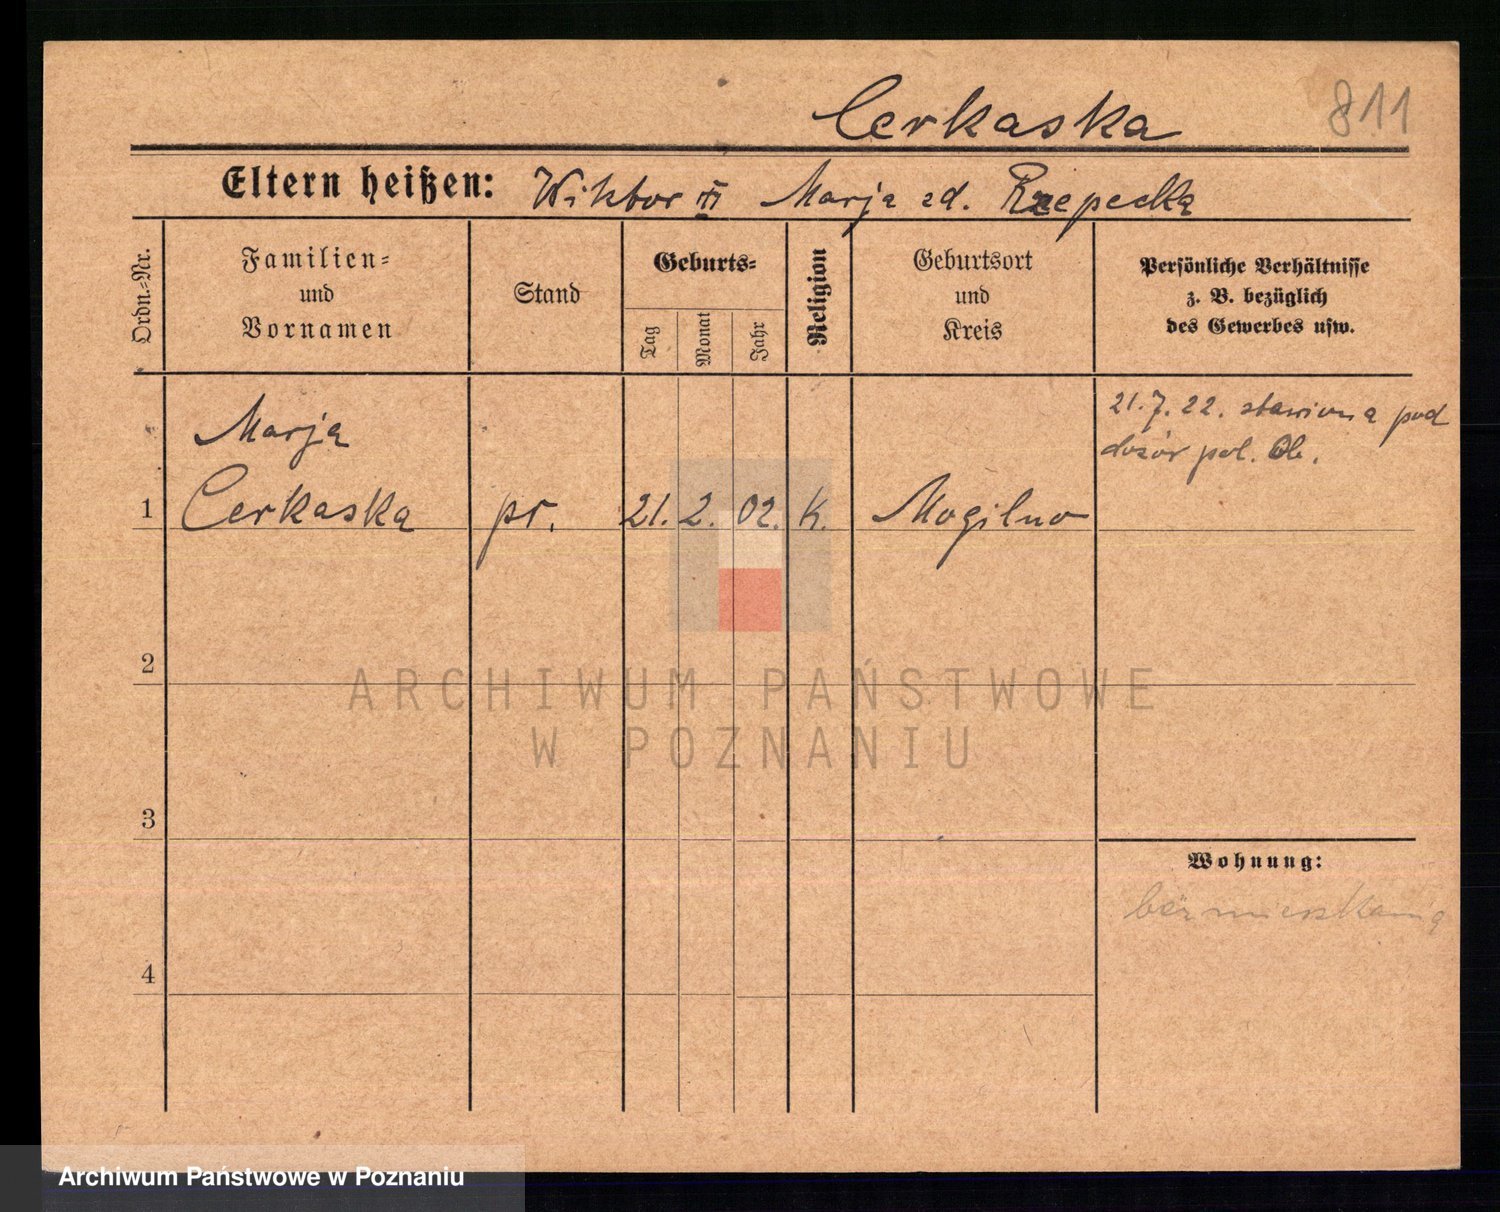 Cerkaska 811
Eltern heißen: Wiktor Marja zd. Rzepecka
Ordn.-Nr.
Familien-
und
Vornamen
Stand
Geburts-
Tag
Monat
Jahr
Religion
Geburtsort
und
Kreis
Persönliche Verhältnisse
z. B. bezüglich
des Gewerbes usw.
21.7.22. stawiona pod
dozór pol. Ob.
Marja
1 Cerkaska pr. 21. 2. 02. K. Mogilno
2
ARCHIWUM PAŃSTWOWE
W POZNANIU
3
Wohnung:
4
Archiwum Państwowe w Poznaniu